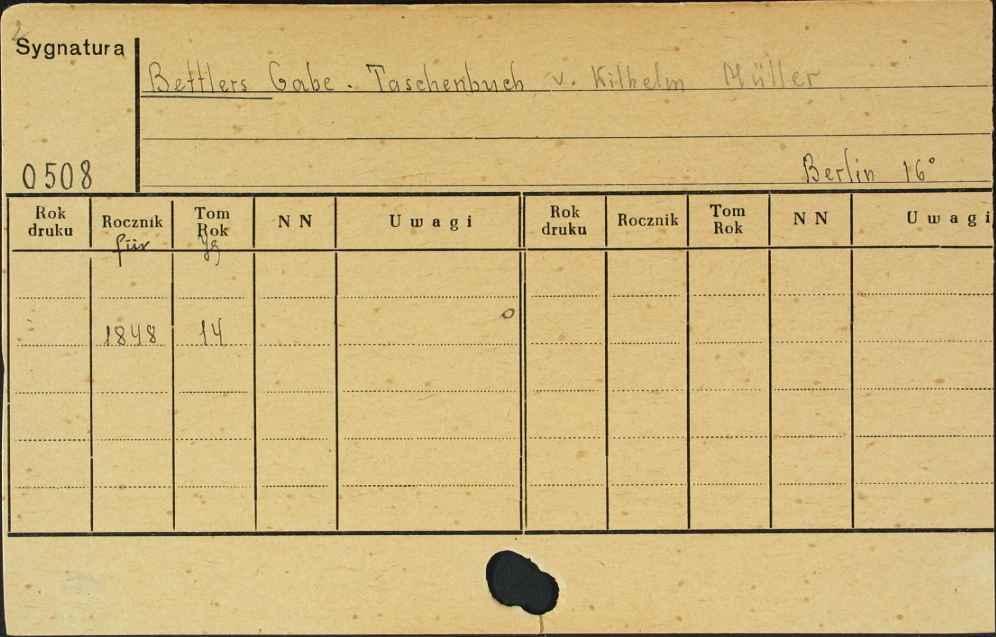 Sygnatura
Bettlers Gabe. Taschenbuch v. Kilhelm Müller
0508
Berlin 16°
Rok druku Rocznik Tom Rok NN Uwagi Rok druku Rocznik Tom Rok NN Uwagi
für Jg
1848 14